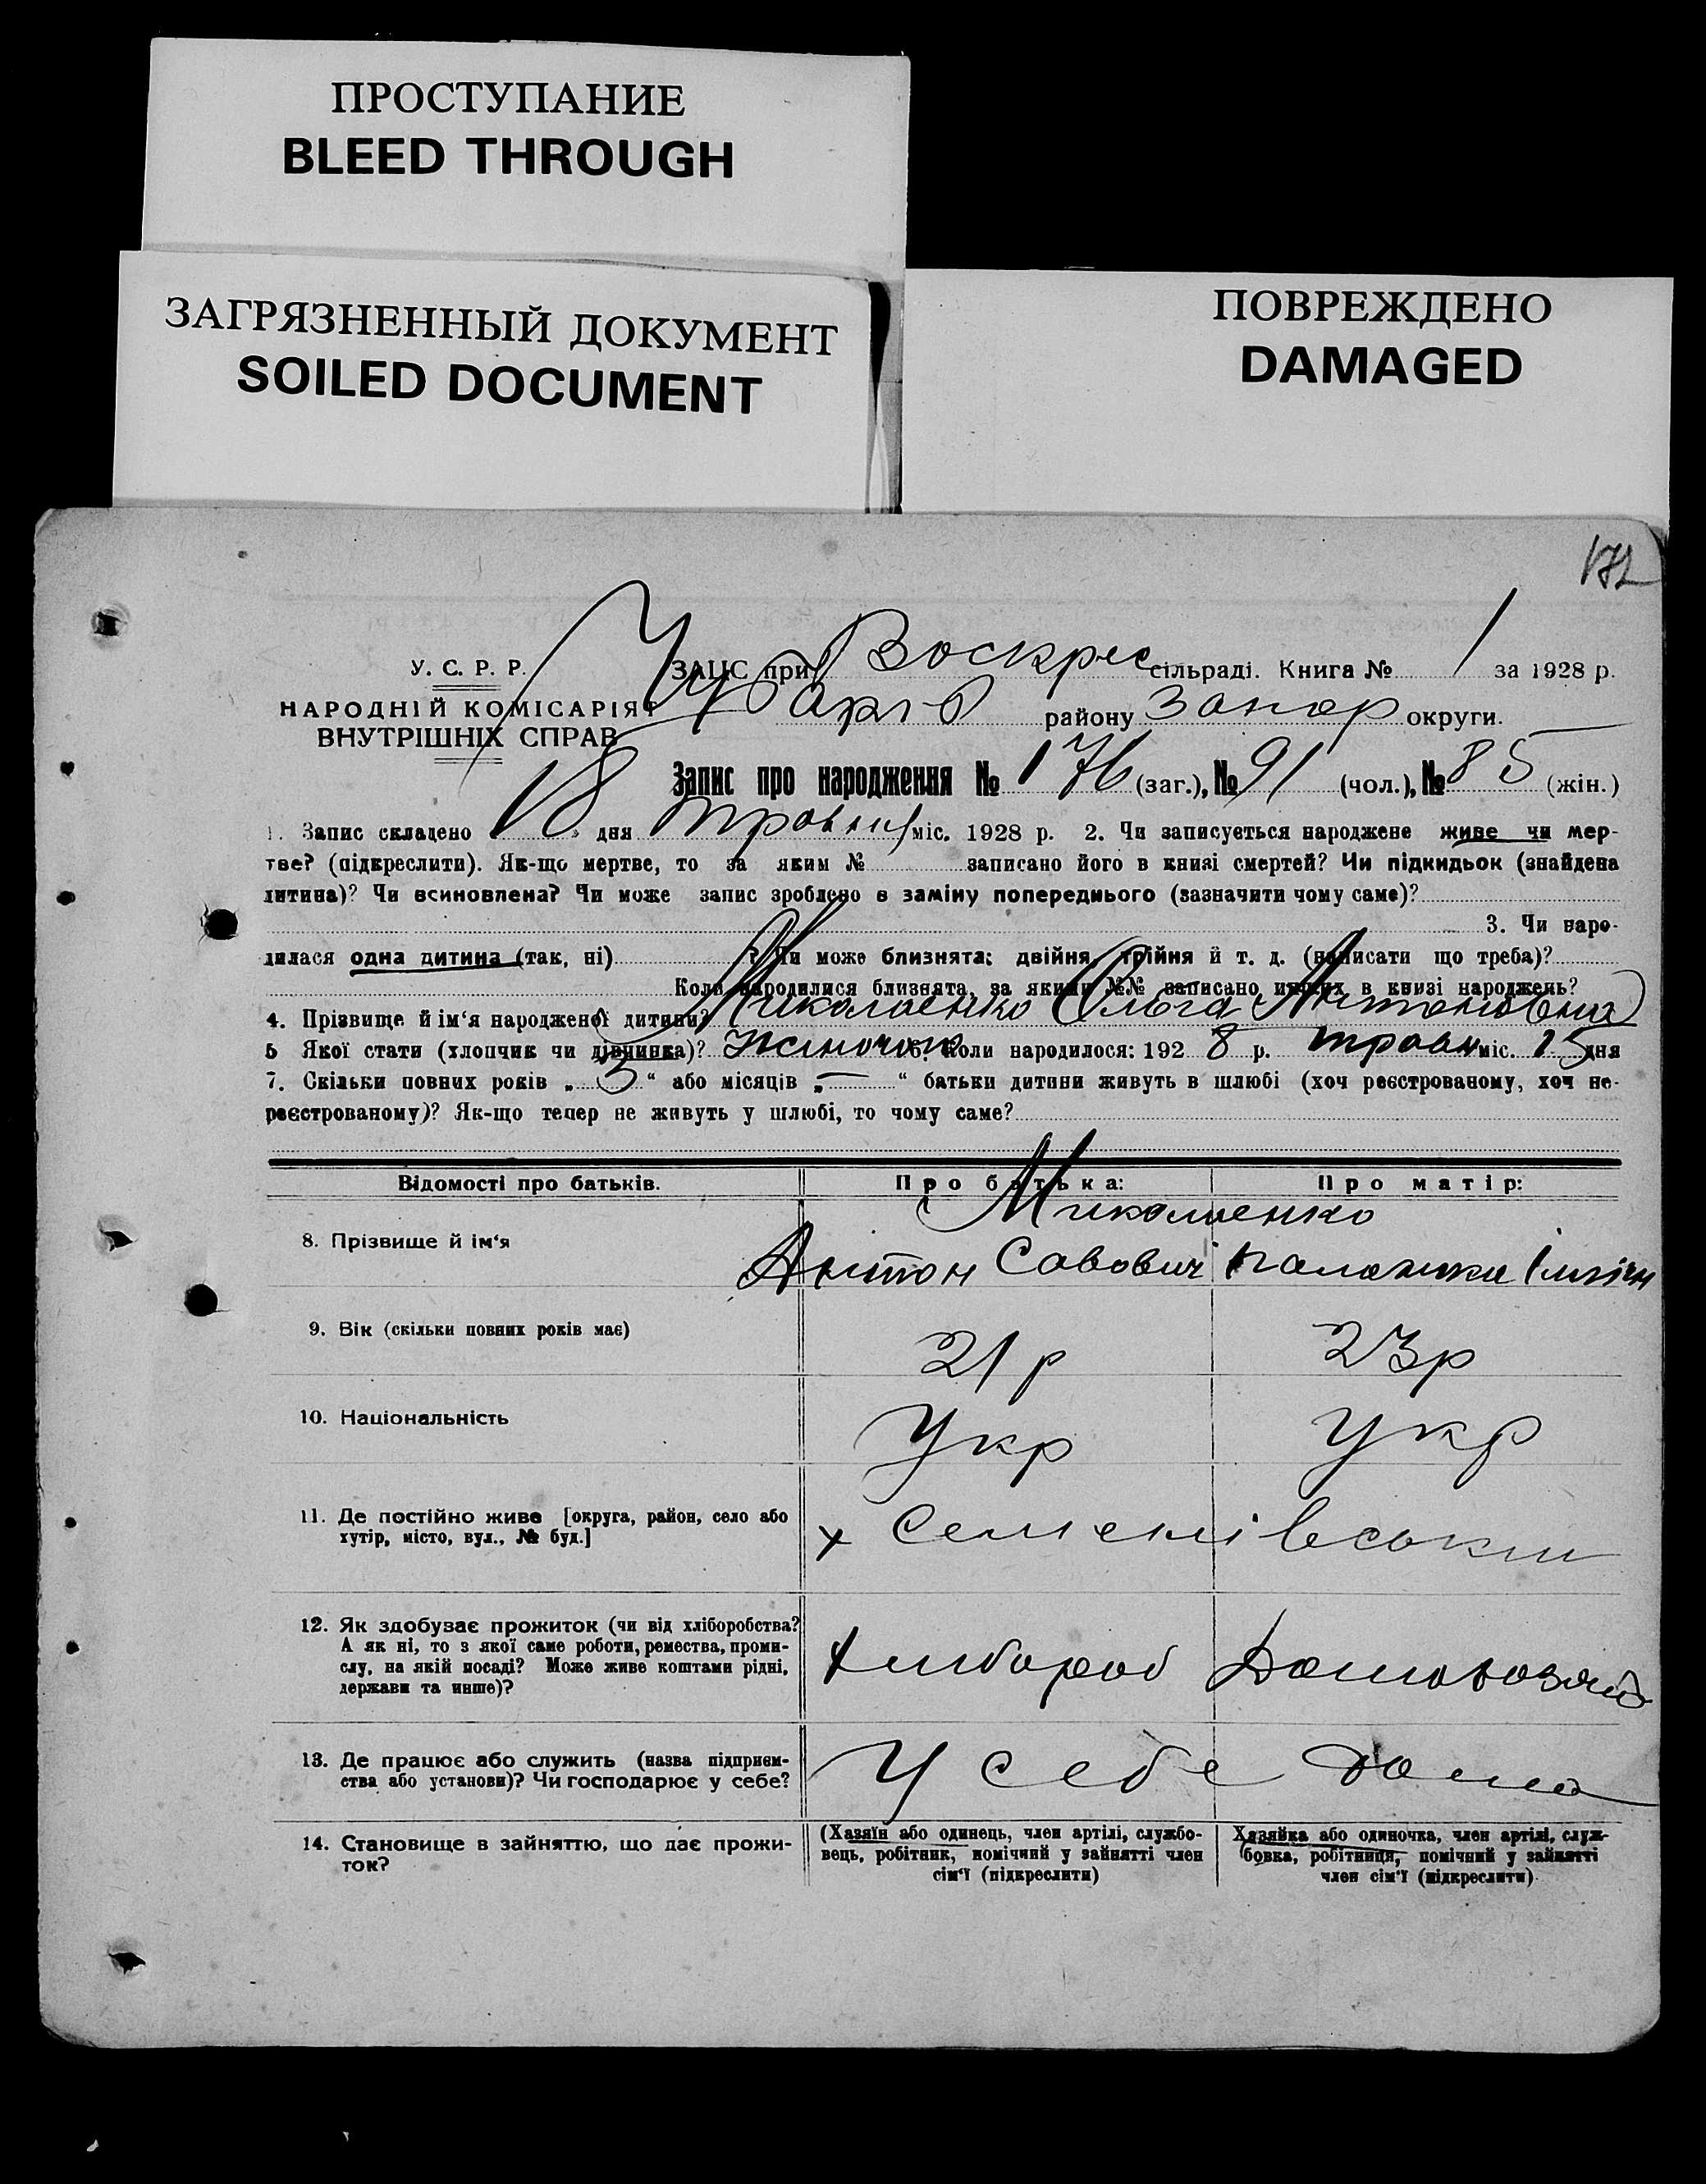 ПРОСТУПАНИЕ
BLEED THROUGH
ЗАГРЯЗНЕННЫЙ ДОКУМЕНТ
SOILED DOCUMENT
ПОВРЕЖДЕНО
DAMAGED
У. С. Р. Р.
НАРОДНІЙ КОМІСАРІЯТ
ВНУТРІШНІХ СПРАВ
ЗАЦС при Воскрес сільраді. Книга № 1 за 1928 р.
району Запор округи.
Запис про народження № 176 (заг.), № 91 (чол.), № 85 (жін.)
1. Запис складено 18 дня травня міс. 1928 р. 2. Чи записується народжене живе чи мер-
тве? (підкреслити). Як-що мертве, то за яким № записано його в книзі смертей? Чи підкидьок (знайдена
дитина)? Чи всиновлена? Чи може запис зроблено в заміну попереднього (зазначити чому саме)?
3. Чи наро-
дилася одна дитина (так, ні) ? Чи може близнята: двійня, трійня й т. д. (написати що треба)?
Коли народилися близнята, за якими №№ записано инших в книзі народжень?
4. Прізвище й ім‘я народженої дитини? Миколаенко Ольга Антоновна
5 Якої стати (хлопчик чи дівчинка)? Жіночої 6. Коли народилося: 192 8 р. травн міс. 15 дня
7. Скільки повних років „ 3 “ або місяців „ — “ батьки дитини живуть в шлюбі (хоч реєстрованому, хоч не-
реєстрованому)? Як-що тепер не живуть у шлюбі, то чому саме?
Відомості про батьків. Про батька: Про матір:
Миколаенко
8. Прізвище й ім‘я Антон Савович
9. Вік (скільки повних років має) 21 р 23 р
10. Національність Укр Укр
11. Де постійно живе [округа, район, село або
хутір, місто, вул., № буд.]
х Семенівськии
12. Як здобуває прожиток (чи від хліборобства?
А як ні, то з якої саме роботи, ремества, проми-
слу, на якій посаді? Може живе коштами рідні,
держави та инше)?
Хлибороб
13. Де працює або служить (назва підприєм-
ства або установи)? Чи господарює у себе?
У себе дома
14. Становище в зайняттю, що дає прожи-
ток?
(Хазяїн або одинець, член артілі, службо-
вець, робітник, помічний у зайнятті член
сім‘ї (підкреслити)
Хазяйка або одиночка, член артілі, служ-
бовка, робітниця, помічний у зайнятті
член сім‘ї (підкреслити)